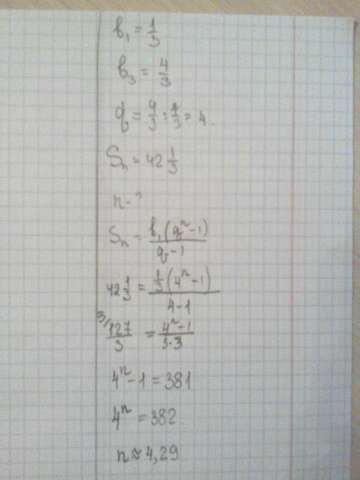 b₁ = 1/3
b₃ = 4/3
q = 4/3 : 1/3 = 4.
Sₙ = 42 1/3
n - ?
Sₙ = b₁(qⁿ-1)/q-1
42 1/3 = 1/3(4ⁿ-1)/4-1
3/ 127/3 = 4ⁿ-1/3·3
4ⁿ-1 = 381
4ⁿ = 382
n ≈ 4,29